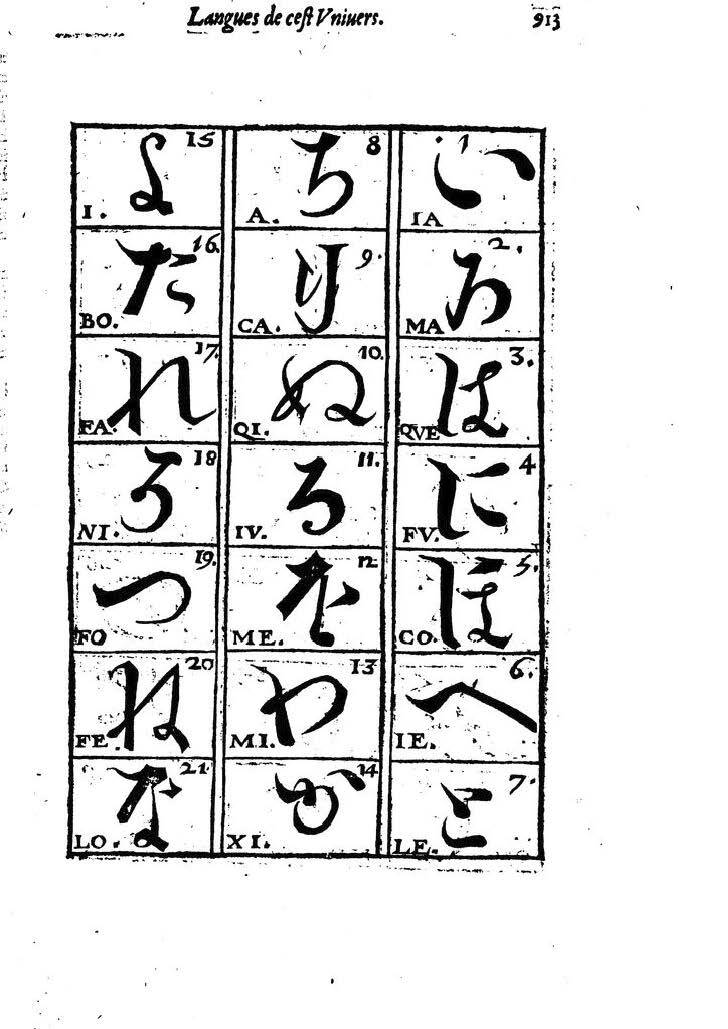 Langues de ceſt Vniuers. 913
1 い
IA
2. ろ
MA
3. は
QVE
4 に
FV.
5. ほ
CO.
6. へ
IE.
7. と
LE.
8 ち
A.
9. り
CA.
10. ぬ
QI.
11. る
IV.
12 を
ME.
13 わ
MI.
14 か
XI.
15 よ
I.
16. た
BO.
17. れ
FA.
18 そ
NI.
19. つ
FO
20 ね
FE.
21. な
LO.